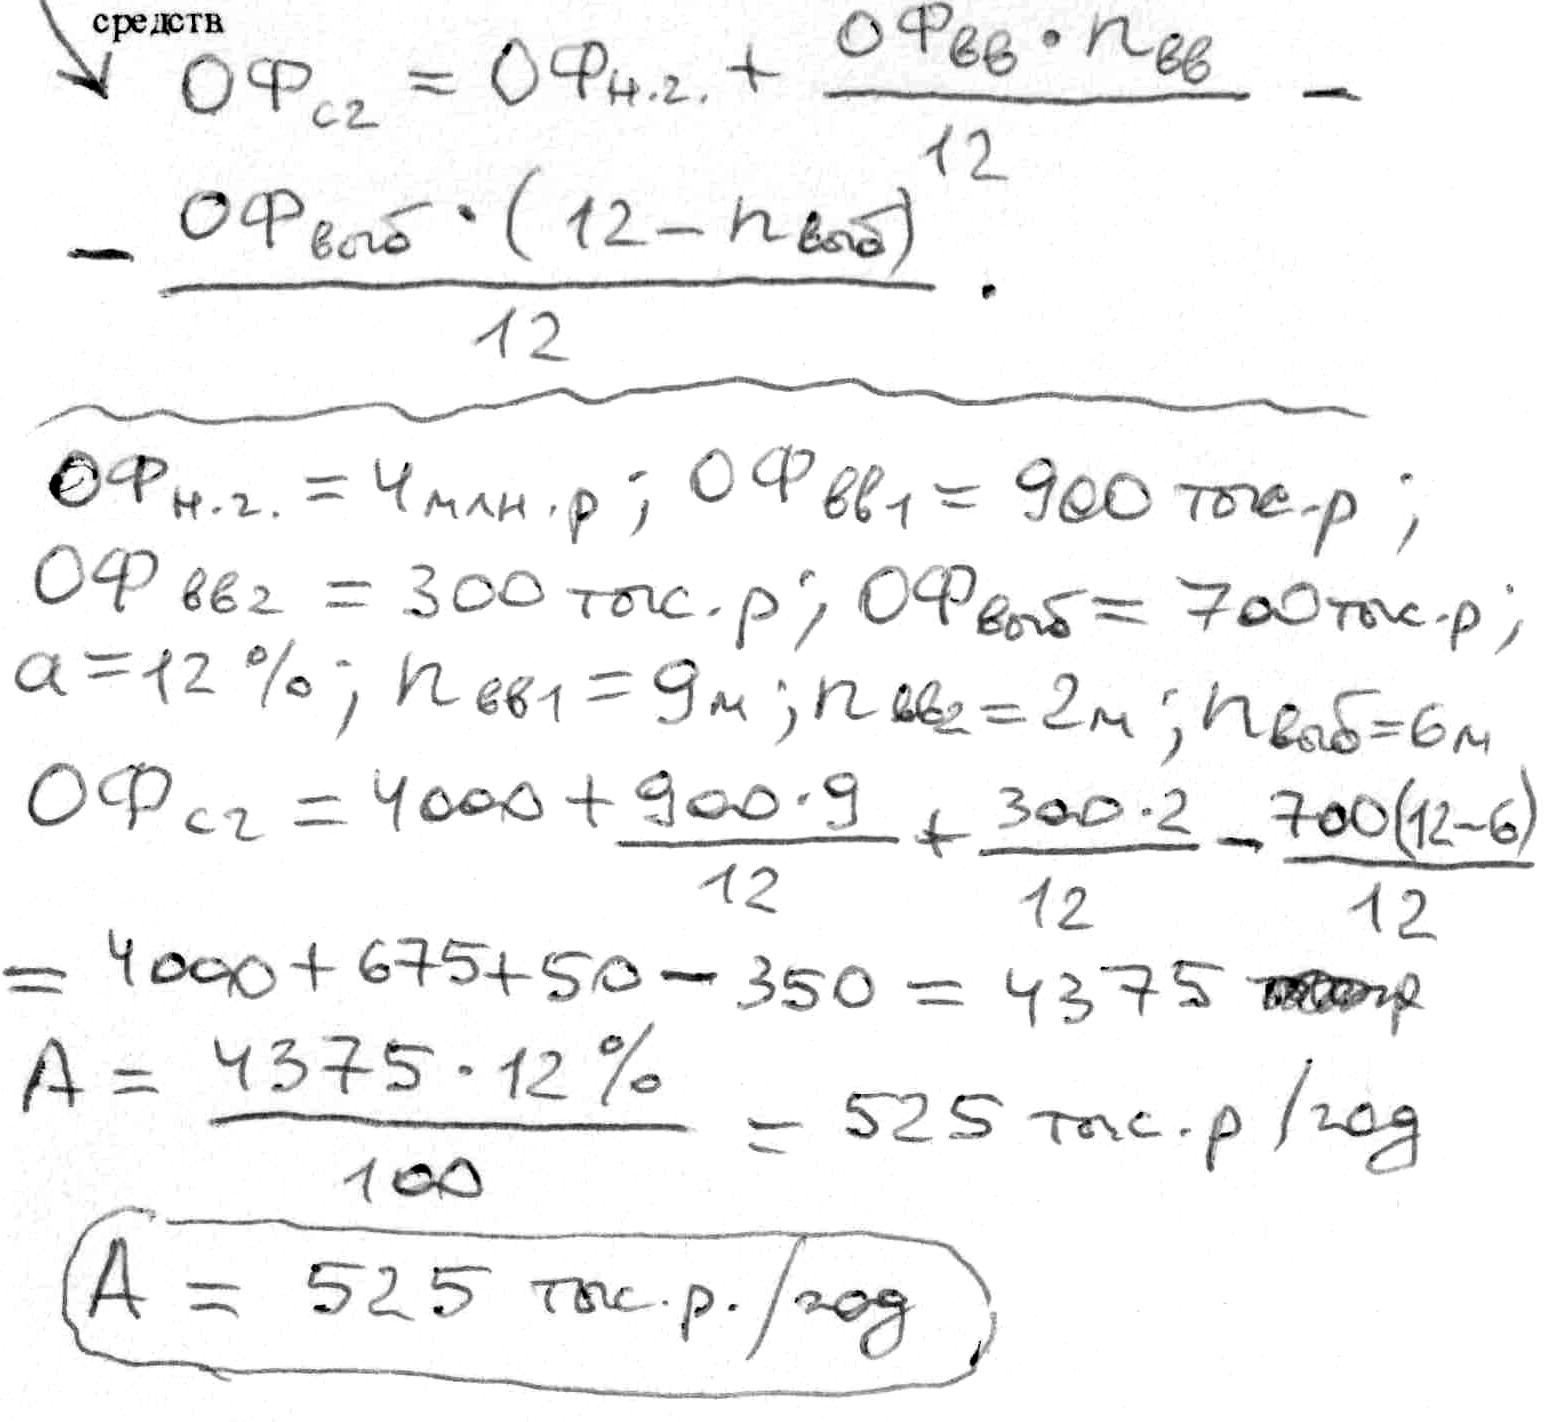 средств
ОФсг = ОФн.г. + ОФвв · nвв / 12 −
− ОФвыб · (12 − nвыб) / 12 .
ОФн.г. = 4 млн.р ; ОФвв1 = 900 тыс.р ;
ОФвв2 = 300 тыс.р ; ОФвыб = 700 тыс.р ;
a = 12 % ; nвв1 = 9м ; nвв2 = 2м ; nвыб = 6м
ОФсг = 4000 + 900·9 / 12 + 300·2 / 12 − 700(12−6) / 12
= 4000 + 675 + 50 − 350 = 4375
А = 4375 · 12 % / 100 = 525 тыс.р /год
А = 525 тыс.р./год